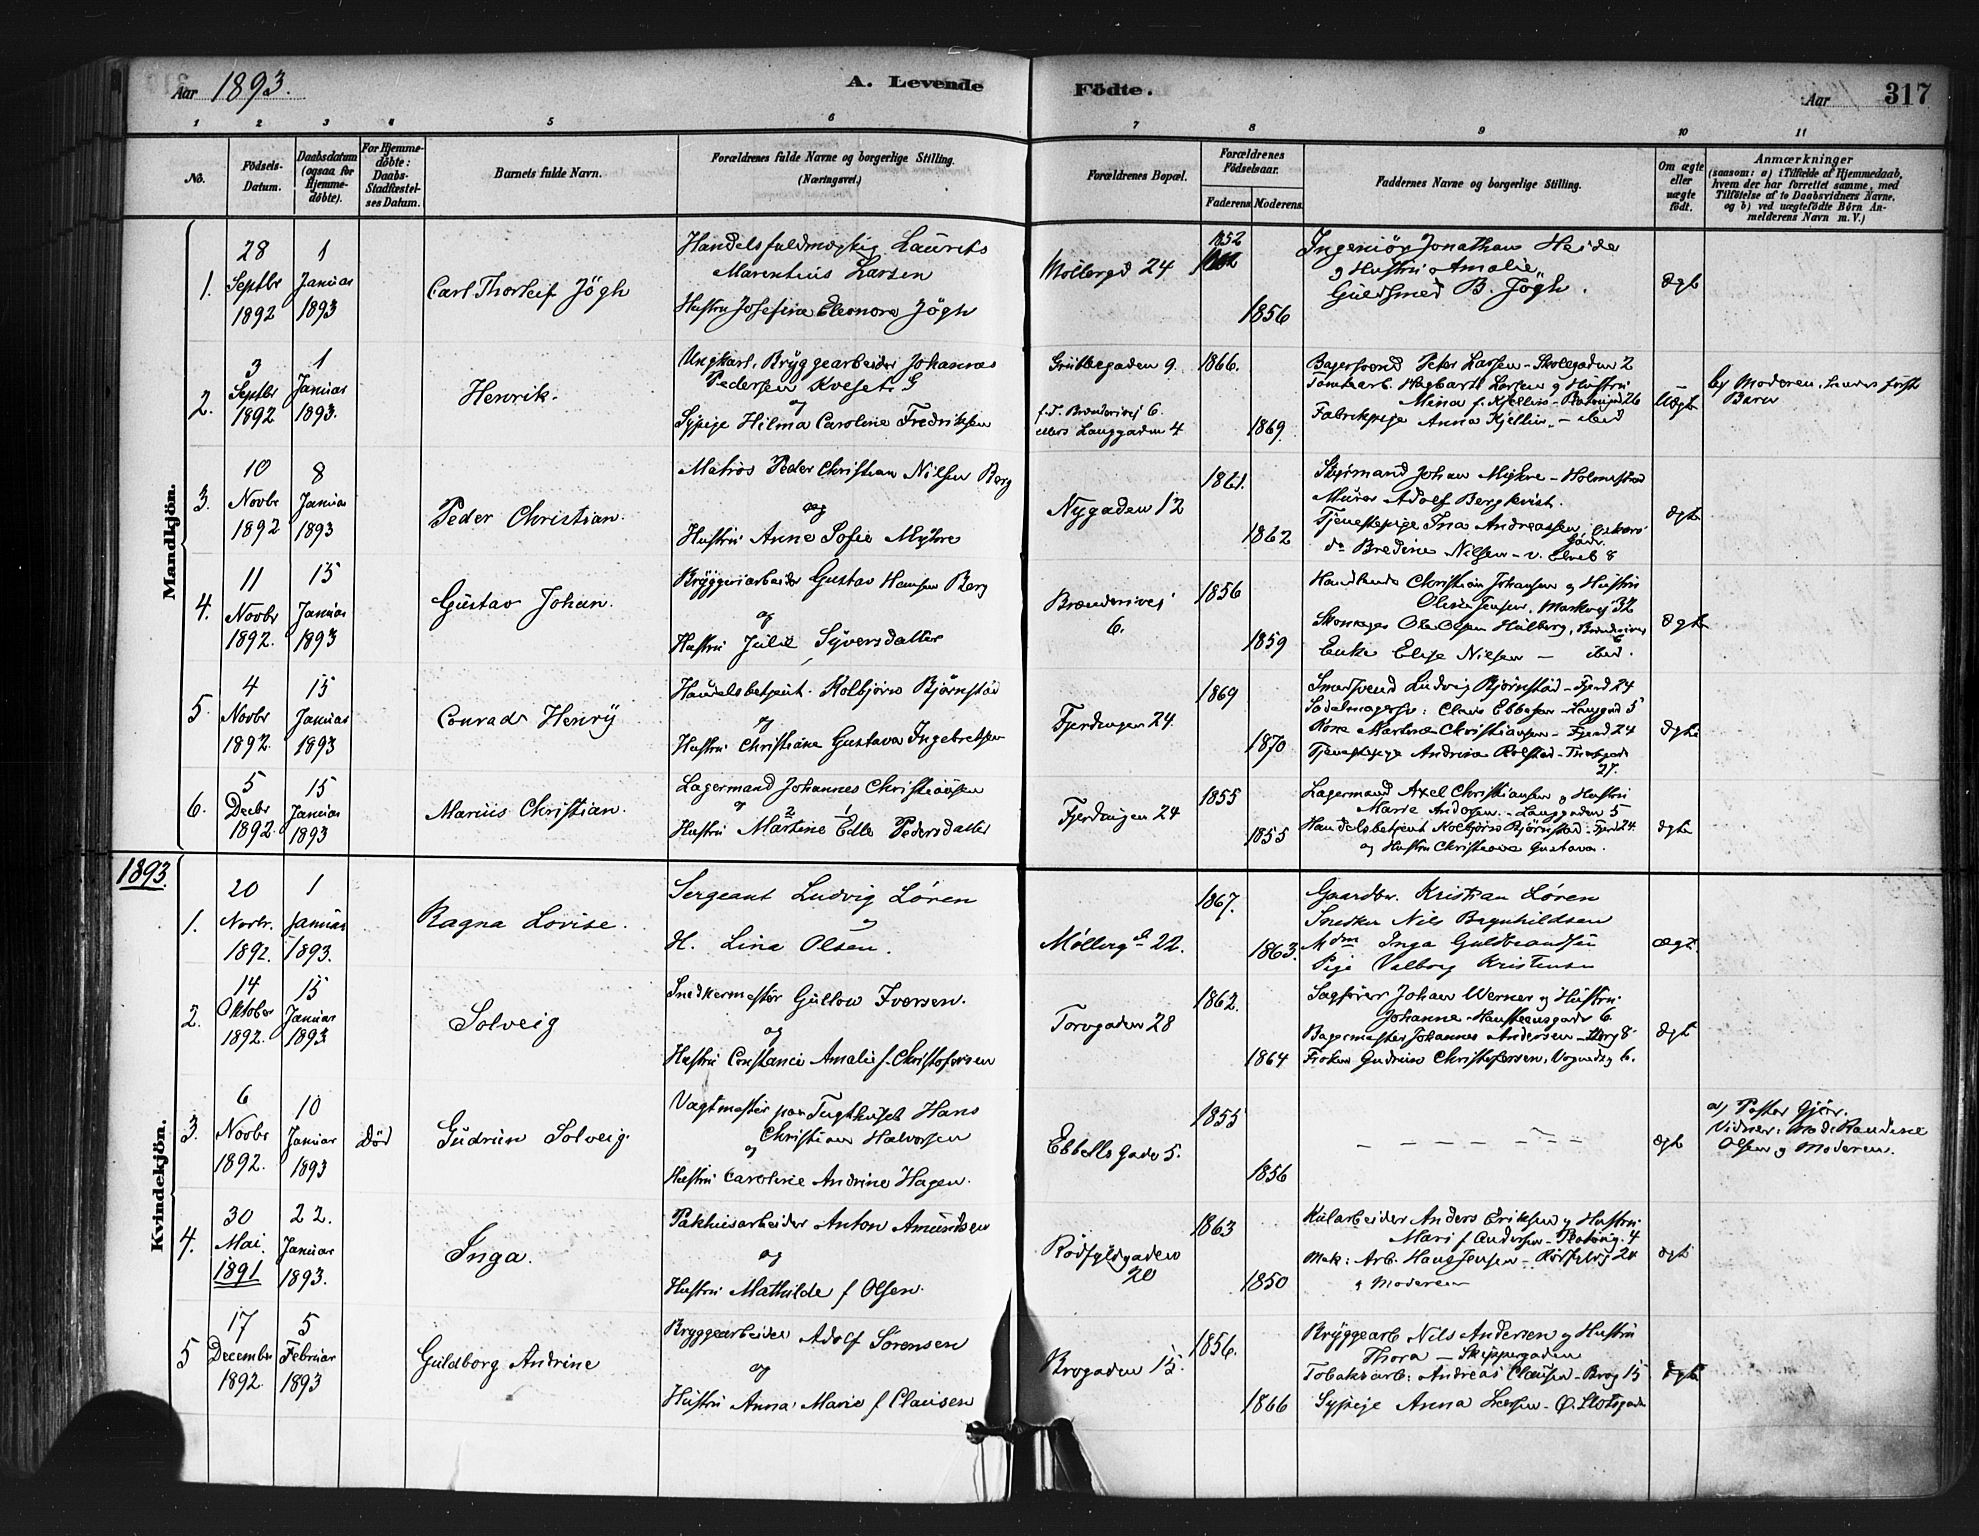 Aar 1893.
A. Levende Födte.
Aar
317
1 2 3 4 5 6 7 8 9 10 11
No.
Födsels-Datum.
Daabsdatum (ogsaa for Hjemme-döbte).
For Hjemme-döbte: Daabs-Stadfæstel-ses Datum.
Barnets fulde Navn.
Forældrenes fulde Navne og borgerlige Stilling.
(Næringsvei.)
Forældrenes Bopæl.
Forældrenes Födselsaar.
Faderens Moderens
Faddernes Navne og borgerlige Stilling.
Om ægte eller uægte födt.
Anmærkninger
(saasom: a) i Tilfælde af Hjemmedaab,
hvem der har forrettet samme, med
Tilföielse af to Daabsvidners Navne,
og b) ved uægtefödte Börn An-
melderens Navn m. V.)
Mandkjön.
1. 28 Septbr 1892
1 Januar 1893
Carl Thorleif Jögh
Handelsfuldmægtig Laurits
Marentius Larsen
Hustru Josefine Eleonore Jögh
Möllergd 24
1852
1856
Ingeniör Jonathan Heide
og Hustru Amalie
Guldsmed B. Jögh.
Ægte
2. 3 Septbr 1892
1 Januar 1893.
Henrik.
Ungkarl, Bryggearbeider Johannes
Pedersen Kveset
og
Sypige Hilma Caroline Fredriksen
Grübbegaden 9.
f.T. Brænderivej 6.
ellers Langgaden 4
1866.
1869.
Bagersvend Peter Larsen - Skolegaden 2
Tomtearb. Hagbarth Larsen og Hustru
Mina f. Kjellin
Fabrikpige Anna Kjellin - ibid
Uægte
b) Moderen. Hendes förste
Barn
3. 10 Novbr 1892
8 Januar 1893
Peder Christian.
Matros Peder Christian Nilsen Berg
og
Hustru Anne Sofie Myhre
Nygaden 12
1861.
1862
Styrmand Johan Myhre - Holmestrand
Murer Adolf Bergkvist.
Tjenestepige Ina Andreassen
do Bredine Nilsen - v. Elveb 8
Ægte
4. 11 Novbr 1892.
15 Januar 1893
Gustav Johan.
Bryggeriarbeider Gustav Hansen Berg
og
Hustru Julie Syversdatter
Brænderivej
6.
1856
1859
Handlende Christian Johansen og Hustru
Olivia Jensen, Markvej 32
Skomager Ole Olsen Halberg, Brænderivej
6
Enke Elise Nilsen - ibid.
Ægte
5. 4 Novbr 1892.
15 Januar 1893
Conrad Henry
Handelsbetjent Kolbjörn Björnstad
og
Hustru Christiane Gustava Ingebretsen
Fjerdingen 24.
1869
1870
Smedsvend Ludvig Björnstad - Fjerd 24
Sadelmagersv: Claus Ebbesen - Langgd 5
Kone Martine Christiansen - Fjerd 24
Tjenestepige Andrina Rolstad
27.
Ægte
6. 5 Decbr 1892.
15 Januar 1893
Marius Christian.
Lagermand Johannes Christiansen
og 2 1
Hustru Martine Edle Pedersdatter
Fjerdingen 24
1855
1855
Lagermand Axel Christiansen og Hustru
Marie Andersen - Langgaden 5
Handelsbetjent Kolbjörn Björnstad - Fjerd 24
og Hustru Christiane Gustava.
Ægte
1893.
Kvindekjön.
1. 20 Novbr. 1892.
1 Januar 1893.
Ragna Lovise.
Sergeant Ludvig Løren
og
H. Lina Olsen.
Møllerg. 22.
1867.
1863.
Gaardbr. Kristian Løren
Snedker Nils Brynhildsen
Mdm Inga Guldbrandsen
Pige Valborg Kristensen
ægt.
2. 14 Oktober 1892.
15 Januar 1893
Solveig
Snedkermester Güllow Iversen.
og
Hustru Constance Amalie f. Christofersen
Torvgaden 28
1862.
1864
Sagförer Johan Werner og Hustru
Johanne - Hansteensgade 6.
Bagermester Johannes Andersen - Storg 8
Fröken Gudrun Christofersen, Vognmdsg 6.
Ægt
3. 6 Novbr 1892.
10 Januar 1893
Död
Gudrun Solveig.
Vagtmester paa Tugthuset Hans
Christian Halvorsen
og
Hustru Caroline Andrine Hagen.
Ebbells gade 5.
1855
1856
Ægt
a) Pastor Gjör.
Vidner: Mad. Randine
Olsen og Moderen.
4. 30 Mai 1891
22. Januar 1893.
Inga.
Pakhusarbeider Anton Amundsen
og
Hustru Mathilde f Olsen.
Rödfyldgaden
20
1863
1850
Kularbeider Anders Eriksen og Hustru
Mari f Andersen
Mek: Arb. Hans Jensen - Rödfyldg 20
og Moderen
Ægt
5 17 December 1892.
5 Februar 1893
Guldborg Andrine
Bryggearbeider Adolf Sörensen
og
Hustru Anna Marie f Clausen
Brogaden 15.
1856.
1866
Bryggearb Nils Andersen og Hustru
Thora - Skippergaden
Tobaksarb: Andreas Clausen - Brog 15
Sypige Anna Larsen - Ö. Slotsgade
Ægte